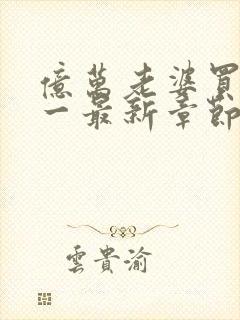 億萬老婆買
一最新章節
雲貴渝